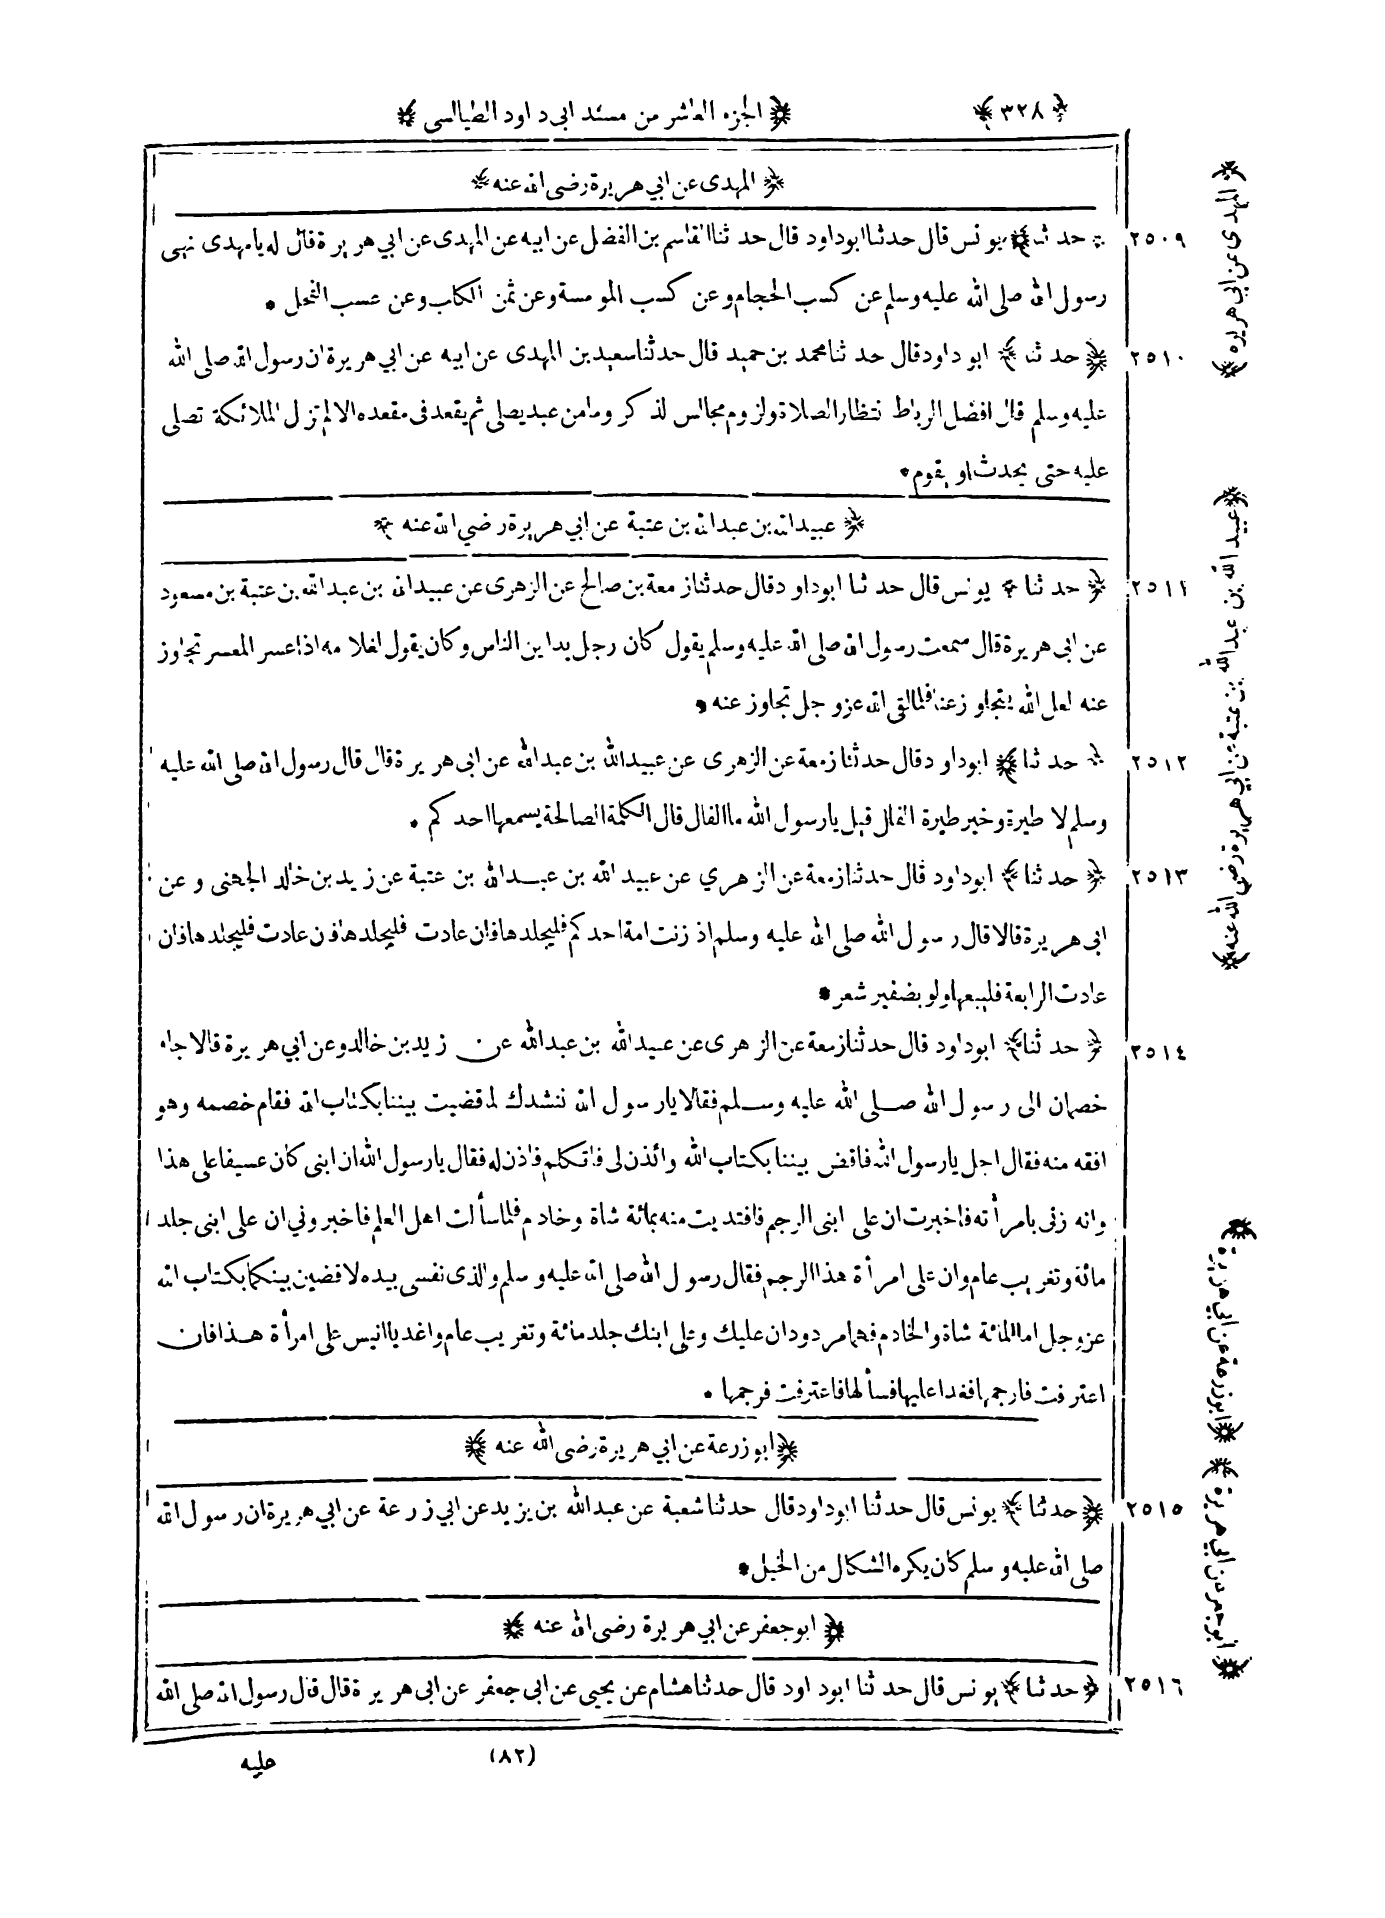 ﴿ ٣٢٨ ﴾
﴿ الجزء العاشر من مسند ابى داود الطيالسى ﴾
﴿ المهدى عن ابي هريرة رضى الله عنه ﴾
٢٥٠٩ ﴿ حدثنا ﴾ يونس قال حدثنا ابوداود قال حدثنا القاسم بن الفضل عن ابيه عن المهدى عن ابي هريرة قال له يا مهدى نهى
رسول الله صلى الله عليه وسلم عن كسب الحجام وعن كسب المومسة وعن ثمن الكلب وعن عسب الفحل •
٢٥١٠ ﴿ حدثنا ﴾ ابوداود قال حدثنا محمد بن حميد قال حدثنا سعيد بن المهدى عن ابيه عن ابي هريرة ان رسول الله صلى الله
عليه وسلم قال افضل الرباط نتظار الصلاة ولزوم مجالس لذكر وما من عبد يصلى ثم يقعد فى مقعده الا لم تزل الملائكة تصلى
عليه حتى يحدث او يقوم •
﴿ عبيدالله بن عبدالله بن عتبة عن ابي هريرة رضي الله عنه ﴾
٢٥١١ ﴿ حدثنا ﴾ يونس قال حدثنا ابوداود قال حدثنا زمعة بن صالح عن الزهرى عن عبيدالله بن عبدالله بن عتبة بن مسعود
عن ابى هريرة قال سمعت رسول الله صلى الله عليه وسلم يقول كان رجل يداين الناس وكان يقول لغلامه اذا عسر المعسر تجاوز
عنه لعل الله يتجاوز عنا فلما لقى الله عزوجل تجاوز عنه •
٢٥١٢ ﴿ حدثنا ﴾ ابوداود قال حدثنا زمعة عن الزهرى عن عبيدالله بن عبدالله عن ابى هريرة قال قال رسول الله صلى الله عليه
وسلم لا طيرة وخير طيرة الفال قيل يا رسول الله ما الفال قال الكلمة الصالحة يسمعها احدكم •
٢٥١٣ ﴿ حدثنا ﴾ ابوداود قال حدثنا زمعة عن الزهري عن عبيد الله بن عبدالله بن عتبة عن زيد بن خالد الجهنى وعن
ابى هريرة قالا قال رسول الله صلى الله عليه وسلم اذ زنت امة احدكم فليجلدها فان عادت فليجلدها فن عادت فليجلدها فان
عادت الرابعة فليبعها ولو بضفير شعر •
٢٥١٤ ﴿ حدثنا ﴾ ابوداود قال حدثنا زمعة عن الزهرى عن عبيدالله بن عبدالله عن زيد بن خالد وعن ابي هريرة قالا جاء
خصمان الى رسول الله صلى الله عليه وسلم فقالا يا رسول الله ننشدك لما قضيت بيننا بكتاب الله فقام خصمه وهو
افقه منه فقال اجل يا رسول الله فاقض بيننا بكتاب الله وائذن لى فاتكلم فاذن له فقال يا رسول الله ان ابنى كان عسيفا على هذا
وانه زنى بامرأته فاخبرت ان على ابنى الرجم فافتديت منه بمائة شاة وخادم فلما سألت اهل العلم فاخبرونى ان على ابنى جلد
مائة وتغريب عام وان على امرأة هذا الرجم فقال رسول الله صلى الله عليه وسلم والذى نفسى بيده لاقضين بينكما بكتاب الله
عزوجل اما المائة شاة والخادم فهما مردودان عليك وعلى ابنك جلد مائة وتغريب عام واغد يا انيس على امرأة هذا فان
اعترفت فارجمها فغدا عليها فسألها فاعترفت فرجمها •
﴿ ابو زرعة عن ابي هريرة رضى الله عنه ﴾
٢٥١٥ ﴿ حدثنا ﴾ يونس قال حدثنا ابوداود قال حدثنا شعبة عن عبدالله بن يزيد عن ابي زرعة عن ابي هريرة ان رسول الله
صلى الله عليه وسلم كان يكره الشكال من الخيل •
﴿ ابو جعفر عن ابي هريرة رضى الله عنه ﴾
٢٥١٦ ﴿ حدثنا ﴾ يونس قال حدثنا ابوداود قال حدثنا هشام عن يحيى عن ابى جعفر عن ابى هريرة قال قال رسول الله صلى الله
(٨٢)
عليه
﴿ المهدى عن ابي هريرة ﴾
﴿ عبيد الله بن عبدالله بن عتبة عن ابي هريرة رضى الله عنه ﴾
﴿ ابو زرعة عن ابي هريرة ﴾
﴿ ابو جعفر عن ابي هريرة ﴾